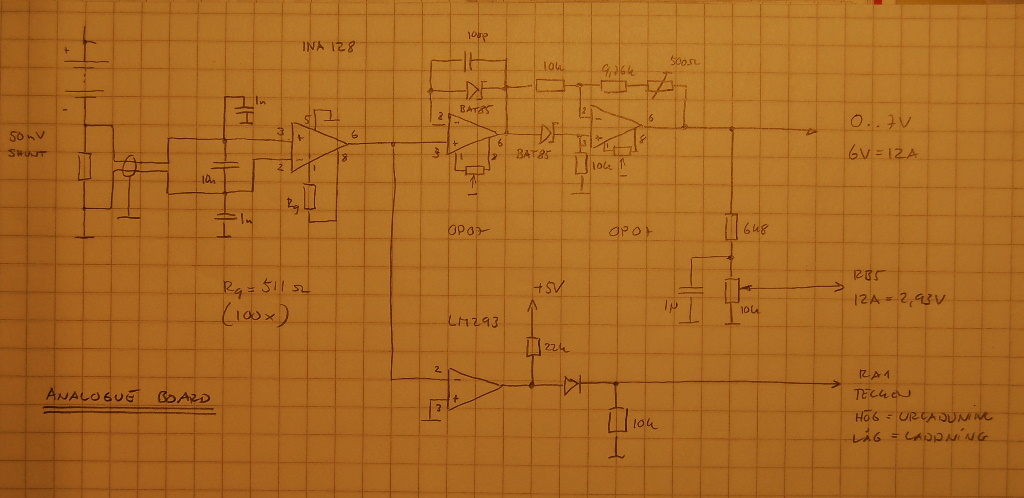 INA 128
100p
BAT85
10k
9,26k
500Ω
1n
+
-
50mV
SHUNT
10n
1n
Rg
3
+
2
-
5
6
8
1
2
-
3
+
6
1
8
BAT85
2
-
3
+
6
1
8
10k
0..7V
6V = 12A
OP07
OP07
6k8
1µ
10k
RB5
12A = 2,93V
Rg = 511 Ω
(100x)
+5V
LM293
22k
2
-
+
3
10k
RA1
TECKEN
HÖG = URLADDNING
LÅG = LADDNING
ANALOGUE BOARD